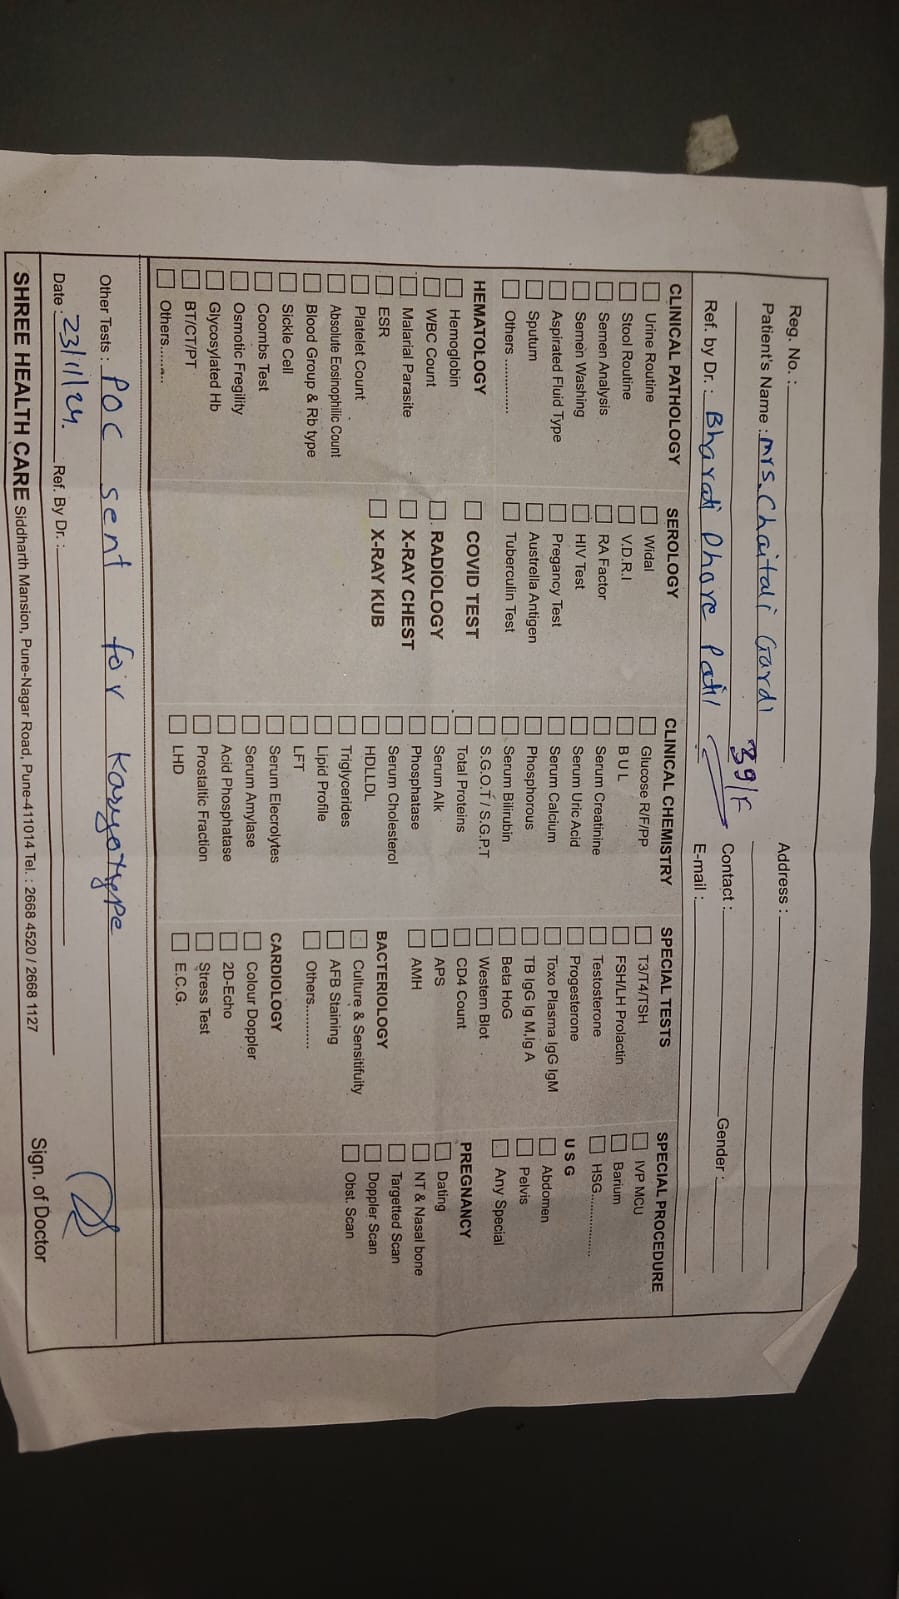 Reg. No. :
Patient's Name : Mrs. Chaitali Gardi
39/F
Ref. by Dr. : Bharati Dhore Patil
Address :
Contact :
Gender :
E-mail :
CLINICAL PATHOLOGY
Urine Routine
Stool Routine
Semen Analysis
Semen Washing
Aspirated Fluid Type
Sputum
Others ............
HEMATOLOGY
Hemoglobin
WBC Count
Malarial Parasite
ESR
Platelet Count
Absolute Eosinophilic Count
Blood Group & Rb type
Sickle Cell
Coombs Test
Osmotic Fregility
Glycosylated Hb
BT/CT/PT
Others.........
SEROLOGY
Widal
V.D.R.I
RA Factor
HIV Test
Pregancy Test
Austrella Antigen
Tuberculin Test
COVID TEST
RADIOLOGY
X-RAY CHEST
X-RAY KUB
CLINICAL CHEMISTRY
Glucose R/F/PP
B U L
Serum Creatinine
Serum Uric Acid
Serum Calcium
Phosphorous
Serum Bilirubin
S.G.O.T / S.G.P.T
Total Proteins
Serum Alk
Phosphatase
Serum Cholesterol
HDLLDL
Triglycerides
Lipid Profile
LFT
Serum Elecrolytes
Serum Amylase
Acid Phosphatase
Prostaltic Fraction
LHD
SPECIAL TESTS
T3/T4/TSH
FSH/LH Prolactin
Testosterone
Progesterone
Toxo Plasma IgG IgM
TB IgG Ig M,Ig A
Beta HoG
Western Blot
CD4 Count
APS
AMH
BACTERIOLOGY
Culture & Sensitifuity
AFB Staining
Others...........
CARDIOLOGY
Colour Doppler
2D-Echo
Stress Test
E.C.G.
SPECIAL PROCEDURE
IVP MCU
Barium
HSG................
U S G
Abdomen
Pelvis
Any Special
PREGNANCY
Dating
NT & Nasal bone
Targetted Scan
Doppler Scan
Obst. Scan
Other Tests : POC sent for karyotype
Date : 23/11/24. Ref. By Dr. :
Sign. of Doctor
SHREE HEALTH CARE Siddharth Mansion, Pune-Nagar Road, Pune-411014 Tel. : 2668 4520 / 2668 1127